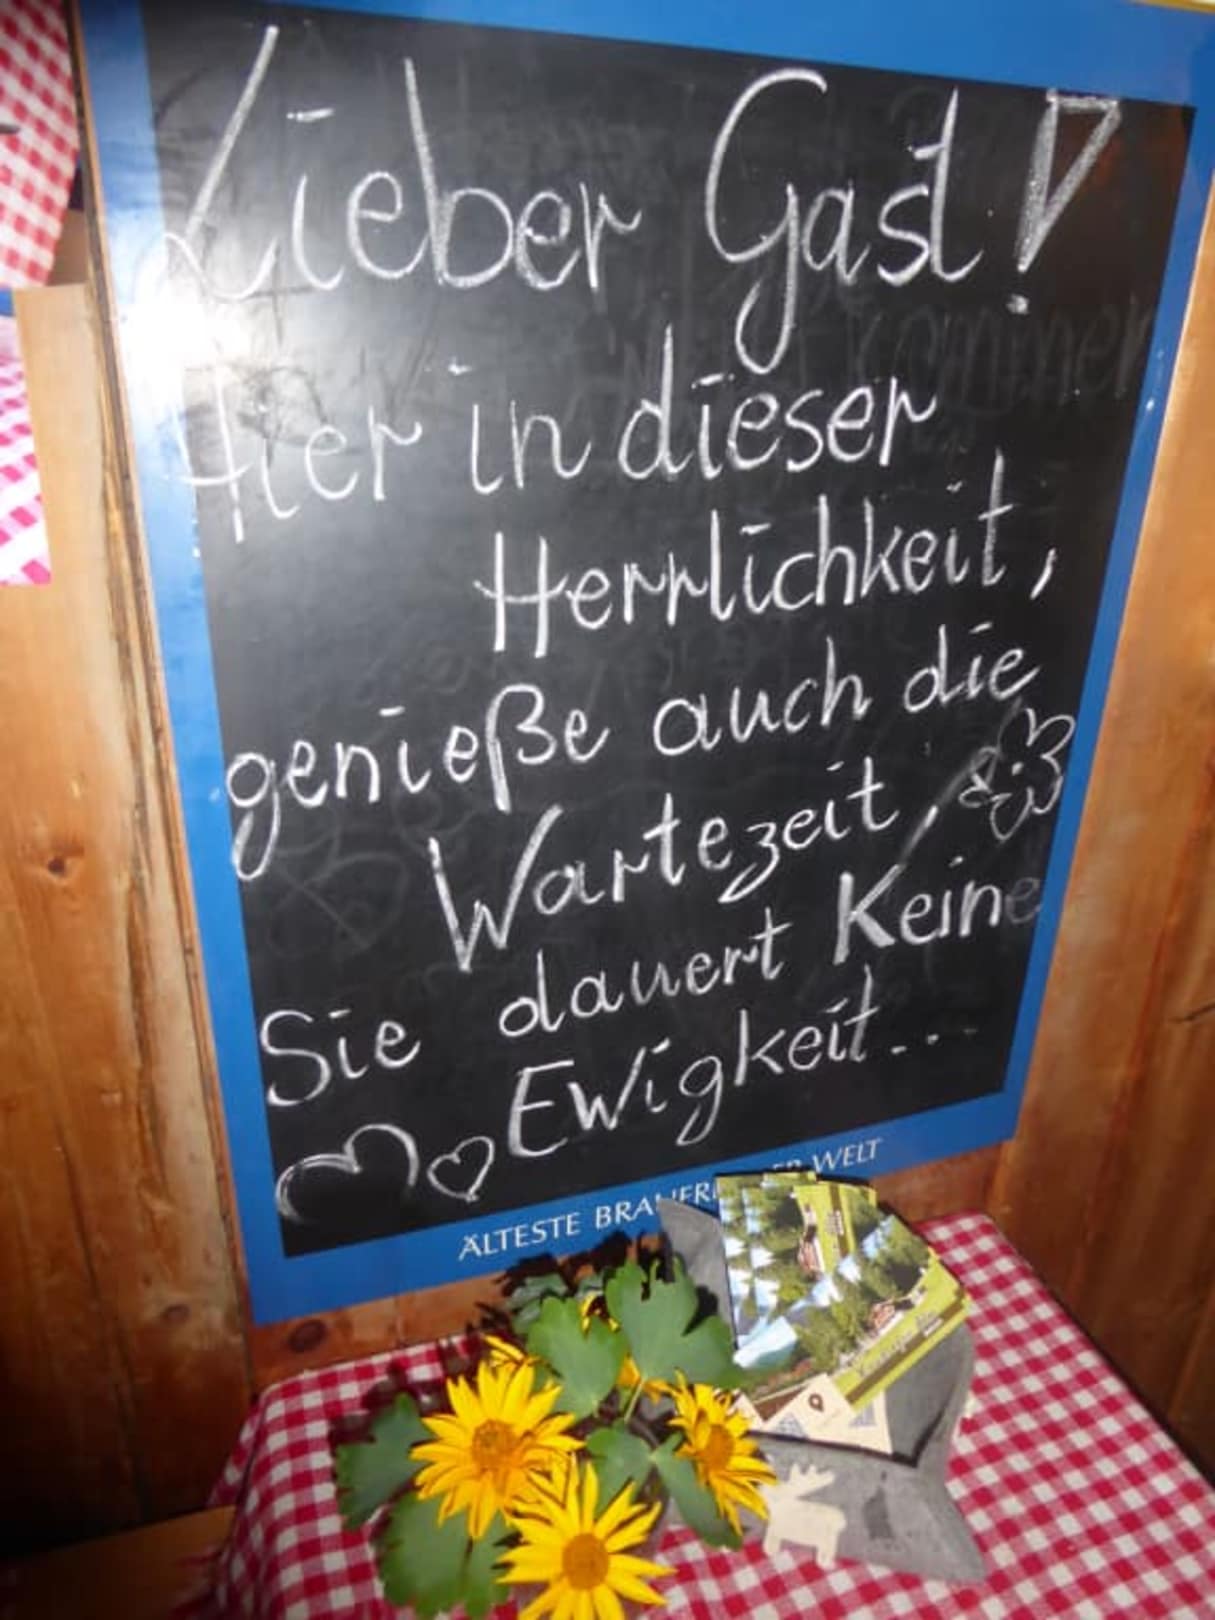 Lieber Gast!
Hier in dieser
Herrlichkeit,
genieße auch die
Wartezeit,
Sie dauert Keine
Ewigkeit...
ÄLTESTE BRAUEREI DER WELT